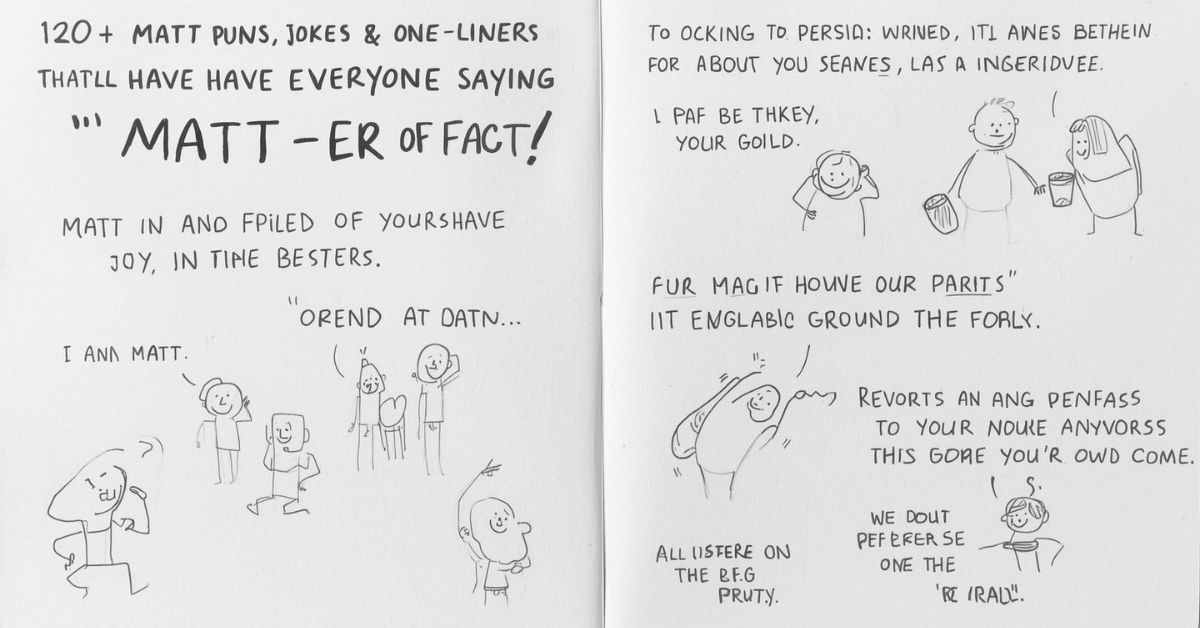 120+ MATT PUNS, JOKES & ONE-LINERS
THATLL HAVE HAVE EVERYONE SAYING
"' MATT-ER OF FACT!
MATT IN AND FPILED OF YOURSHAVE
JOY, IN TIHE BESTERS.
"OREND AT DATN...
I ANA MATT.
TO OCKING TO PERSIA: WRINED, ITI AWES BETHEIN
FOR ABOUT YOU SEANES, LAS A INGERIDVEE.
I PAF BE THKEY,
YOUR GOILD.
FUR MAGIF HOUVE OUR PARITS"
IIT ENGLABIC GROUND THE FORLY.
REVORTS AN ANG PENFASS
TO YOUR NOUKE ANYVORSS
THIS GORE YOU'R OWD COME.
ALL USTERE ON
THE B.F.G
PRUTY.
WE DOUT
PEFERER SE
ONE THE